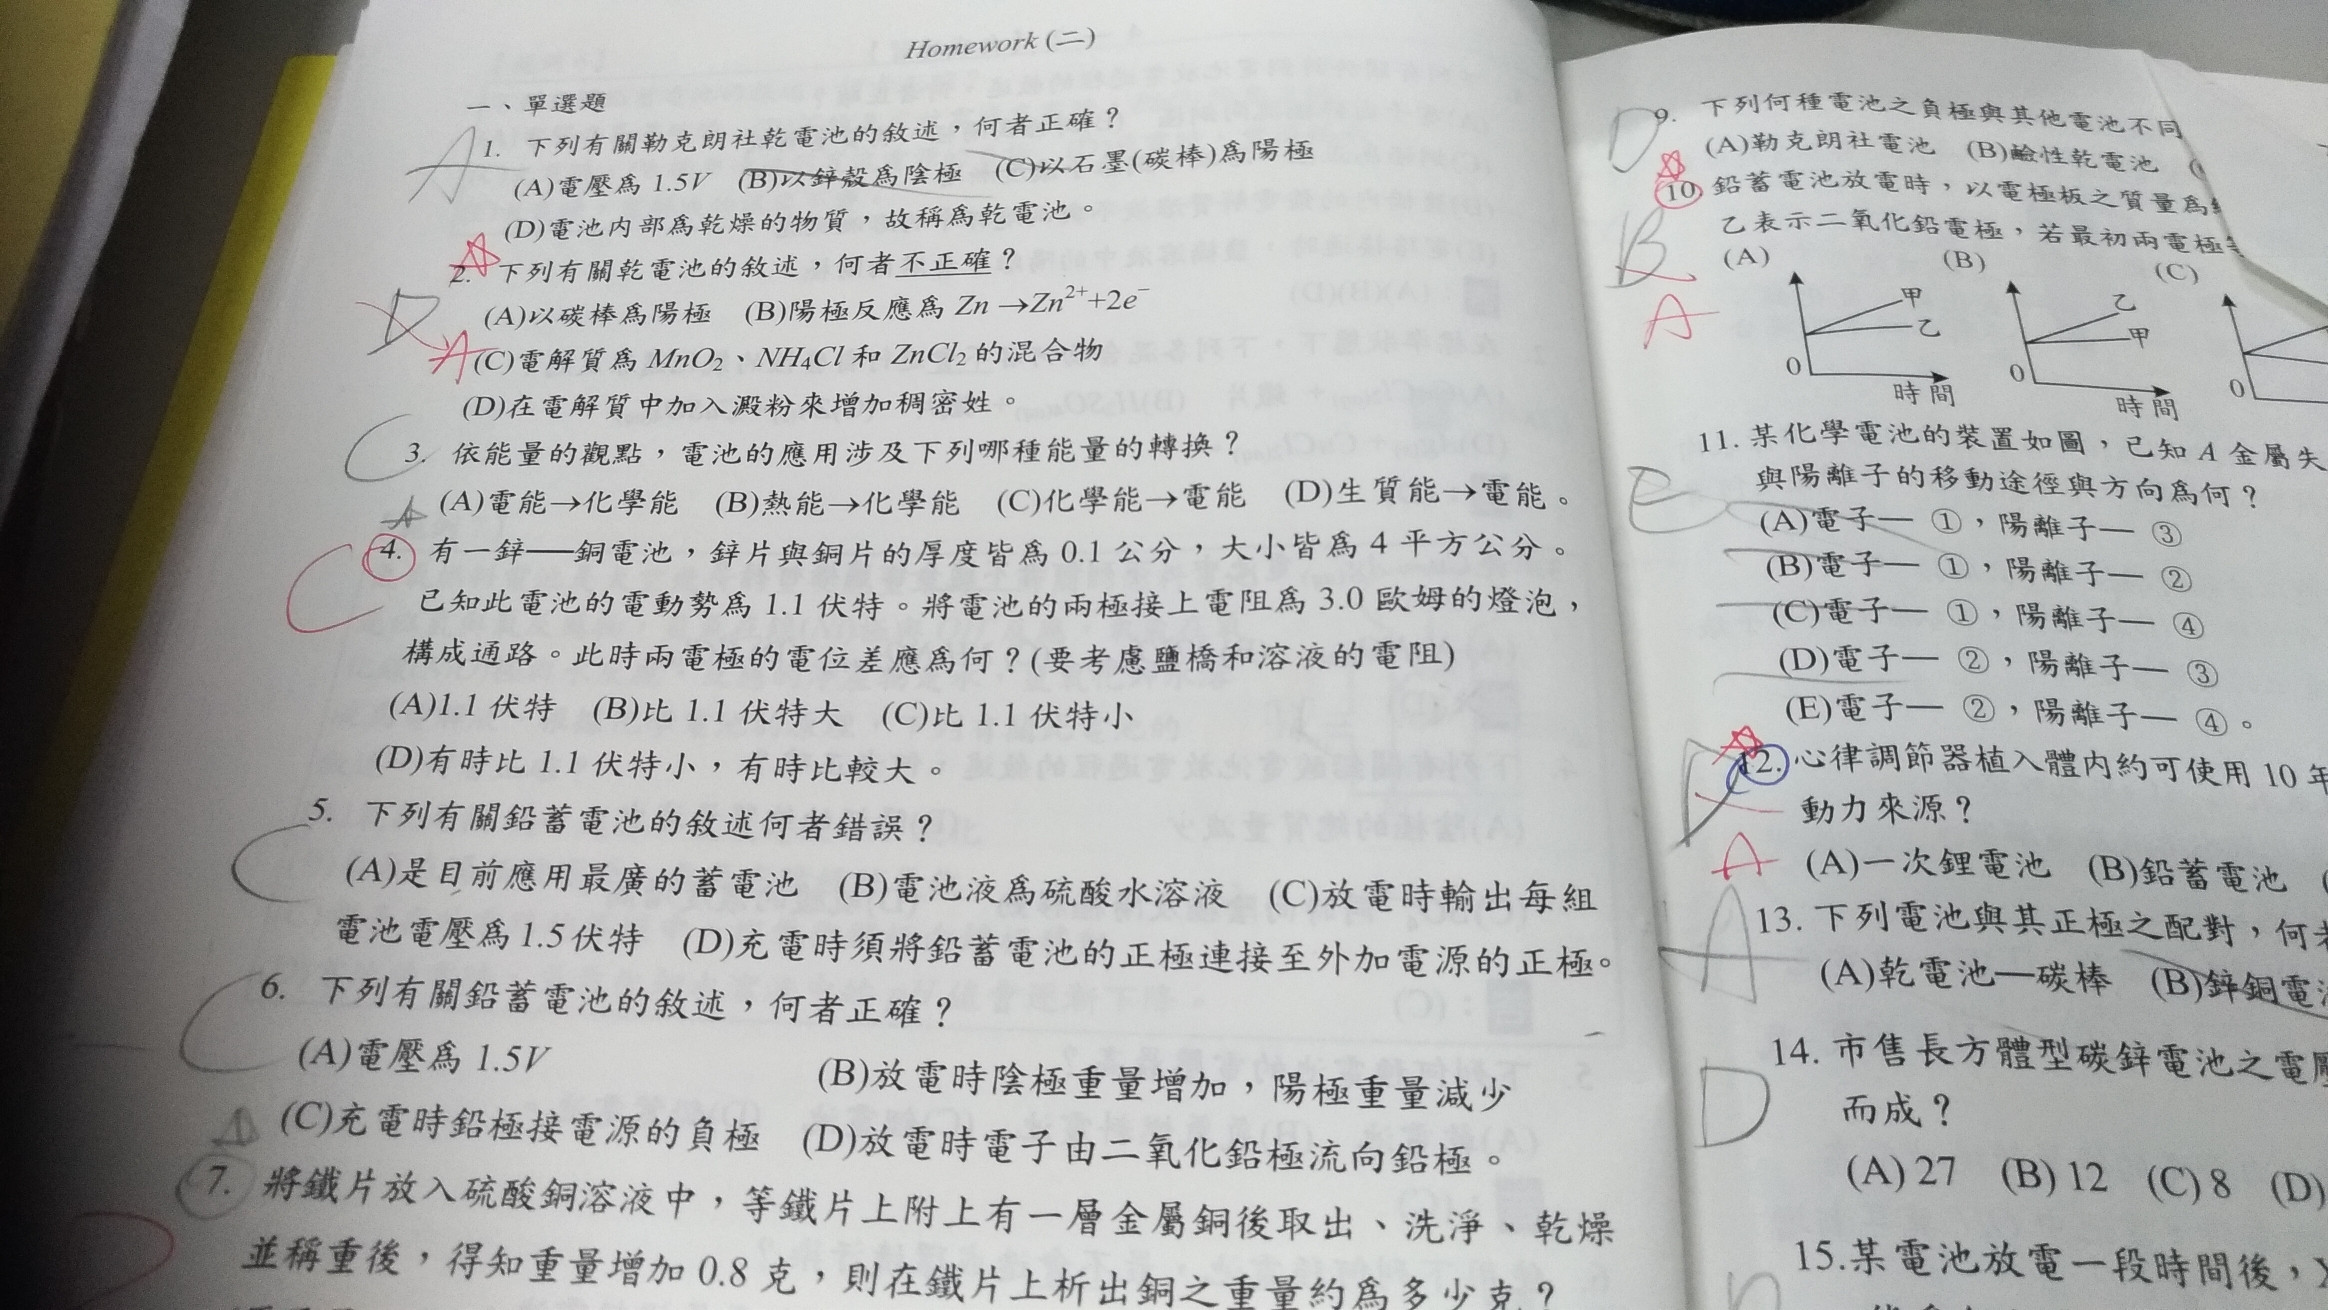 Homework (二)
一、單選題
A
1. 下列有關勒克朗社乾電池的敘述，何者正確？
(A)電壓為 1.5V (B)以鋅殼為陰極 (C)以石墨(碳棒)為陽極
(D)電池內部為乾燥的物質，故稱為乾電池。
D
A
2. 下列有關乾電池的敘述，何者不正確？
(A)以碳棒為陽極 (B)陽極反應為 Zn →Zn²⁺+2e⁻
(C)電解質為 MnO₂、NH₄Cl 和 ZnCl₂ 的混合物
(D)在電解質中加入澱粉來增加稠密姓。
C
3. 依能量的觀點，電池的應用涉及下列哪種能量的轉換？
(A)電能→化學能 (B)熱能→化學能 (C)化學能→電能 (D)生質能→電能。
C
4. 有一鋅──銅電池，鋅片與銅片的厚度皆為 0.1 公分，大小皆為 4 平方公分。
已知此電池的電動勢為 1.1 伏特。將電池的兩極接上電阻為 3.0 歐姆的燈泡，
構成通路。此時兩電極的電位差應為何？(要考慮鹽橋和溶液的電阻)
(A)1.1 伏特 (B)比 1.1 伏特大 (C)比 1.1 伏特小
(D)有時比 1.1 伏特小，有時比較大。
C
5. 下列有關鉛蓄電池的敘述何者錯誤？
(A)是目前應用最廣的蓄電池 (B)電池液為硫酸水溶液 (C)放電時輸出每組
電池電壓為 1.5 伏特 (D)充電時須將鉛蓄電池的正極連接至外加電源的正極。
C
6. 下列有關鉛蓄電池的敘述，何者正確？
(A)電壓為 1.5V (B)放電時陰極重量增加，陽極重量減少
(C)充電時鉛極接電源的負極 (D)放電時電子由二氧化鉛極流向鉛極。
7. 將鐵片放入硫酸銅溶液中，等鐵片上附上有一層金屬銅後取出、洗淨、乾燥
並稱重後，得知重量增加 0.8 克，則在鐵片上析出銅之重量約為多少克？
D
9. 下列何種電池之負極與其他電池不同
(A)勒克朗社電池 (B)鹼性乾電池
B
A
10 鉛蓄電池放電時，以電極板之質量為
乙表示二氧化鉛電極，若最初兩電極
(A) (B) (C)
甲
乙
0
時間
乙
甲
0
時間
0
E
11. 某化學電池的裝置如圖，已知 A 金屬失
與陽離子的移動途徑與方向為何？
(A)電子─ ①，陽離子─ ③
(B)電子─ ①，陽離子─ ②
(C)電子─ ①，陽離子─ ④
(D)電子─ ②，陽離子─ ③
(E)電子─ ②，陽離子─ ④。
D
A
12. 心律調節器植入體內約可使用 10 年
動力來源？
(A)一次鋰電池 (B)鉛蓄電池
A
13. 下列電池與其正極之配對，何者
(A)乾電池─碳棒 (B)鋅銅電池
D
14. 市售長方體型碳鋅電池之電壓
而成？
(A) 27 (B) 12 (C) 8 (D)
15.某電池放電一段時間後，